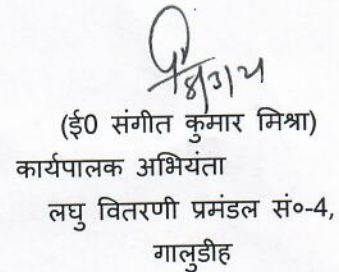 8/3/21
(ई0 संगीत कुमार मिश्रा)
कार्यपालक अभियंता
लघु वितरणी प्रमंडल सं०-4,
गालुडीह